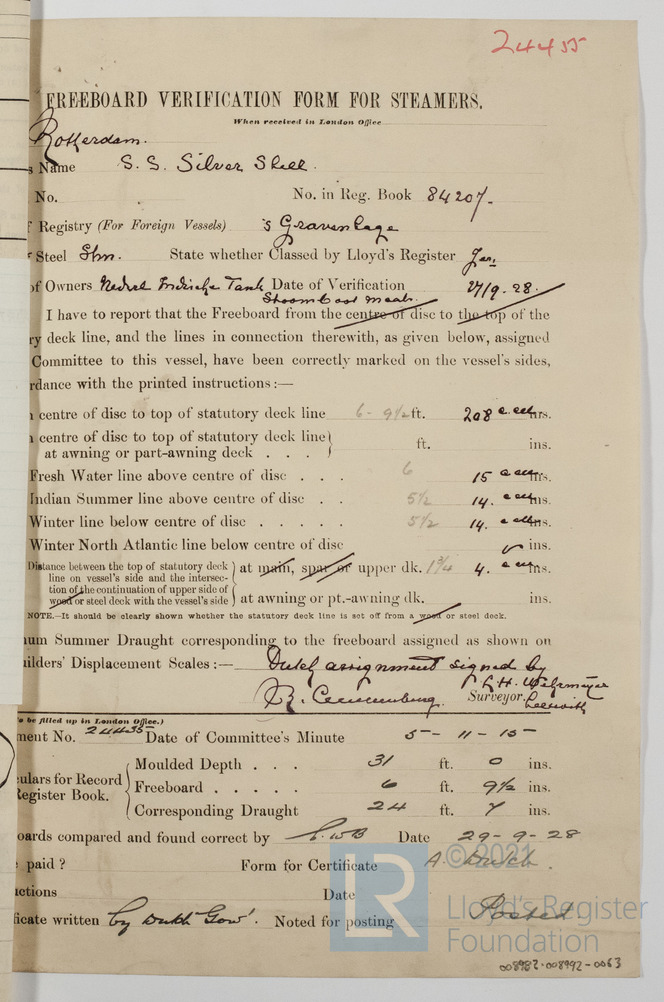 24455
FREEBOARD VERIFICATION FORM FOR STEAMERS.
When received in London Office
Rotterdam.
s Name S. S. Silver Shell.
No. No. in Reg. Book 84207.
f Registry (For Foreign Vessels) 's Gravenhage
r Steel Stm. State whether Classed by Lloyd's Register
of Owners Nederl Indische Tank Date of Verification 27/9.28.
Stoomboot Maats.
I have to report that the Freeboard from the centre of disc to the top of the
ry deck line, and the lines in connection therewith, as given below, assigned
Committee to this vessel, have been correctly marked on the vessel's sides,
rdance with the printed instructions:—
n centre of disc to top of statutory deck line 6-9½ ft. 208 ins.
n centre of disc to top of statutory deck line
at awning or part-awning deck . . . ft. ins.
Fresh Water line above centre of disc . . . 6 15 ins.
Indian Summer line above centre of disc . . 5½ 14. ins.
Winter line below centre of disc . . . . . 5½ 14. ins.
Winter North Atlantic line below centre of disc ins.
Distance between the top of statutory deck
line on vessel's side and the intersec-
tion of the continuation of upper side of
wood or steel deck with the vessel's side
at main, spar or upper dk. 1¾ 4. ins.
at awning or pt.-awning dk. ins.
NOTE.—It should be clearly shown whether the statutory deck line is set off from a wood or steel deck.
um Summer Draught corresponding to the freeboard assigned as shown on
uilders' Displacement Scales:— Dutch assignment signed by
Surveyor.
o be filled up in London Office.)
ment No. 24455 Date of Committee's Minute 5-11-15
culars for Record
Register Book.
Moulded Depth . . . 31 ft. 0 ins.
Freeboard . . . . . 6 ft. 9½ ins.
Corresponding Draught 24 ft. 7 ins.
oards compared and found correct by Date 29-9-28
e paid? Form for Certificate A. Dutch.
uctions Date
ficate written by Dutch Govt. Noted for posting Posted
LR
© 2021
Lloyd's Register
Foundation
008982-008992-0063